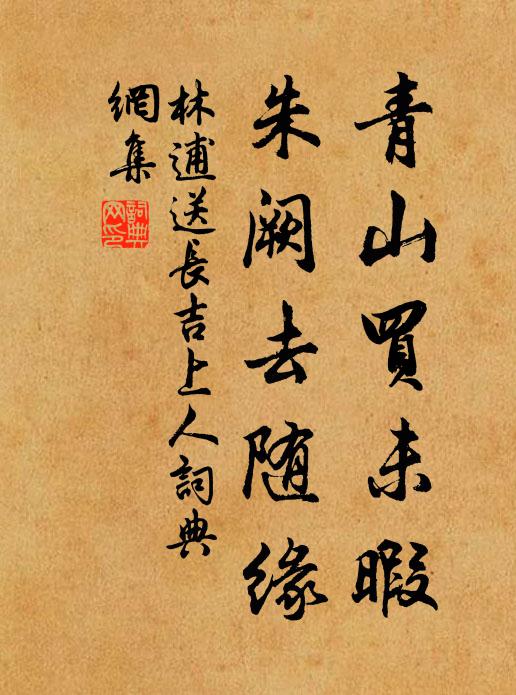 青山買未暇
朱阙去随缘
林逋送長吉上人詞典
網集
詞典
网印